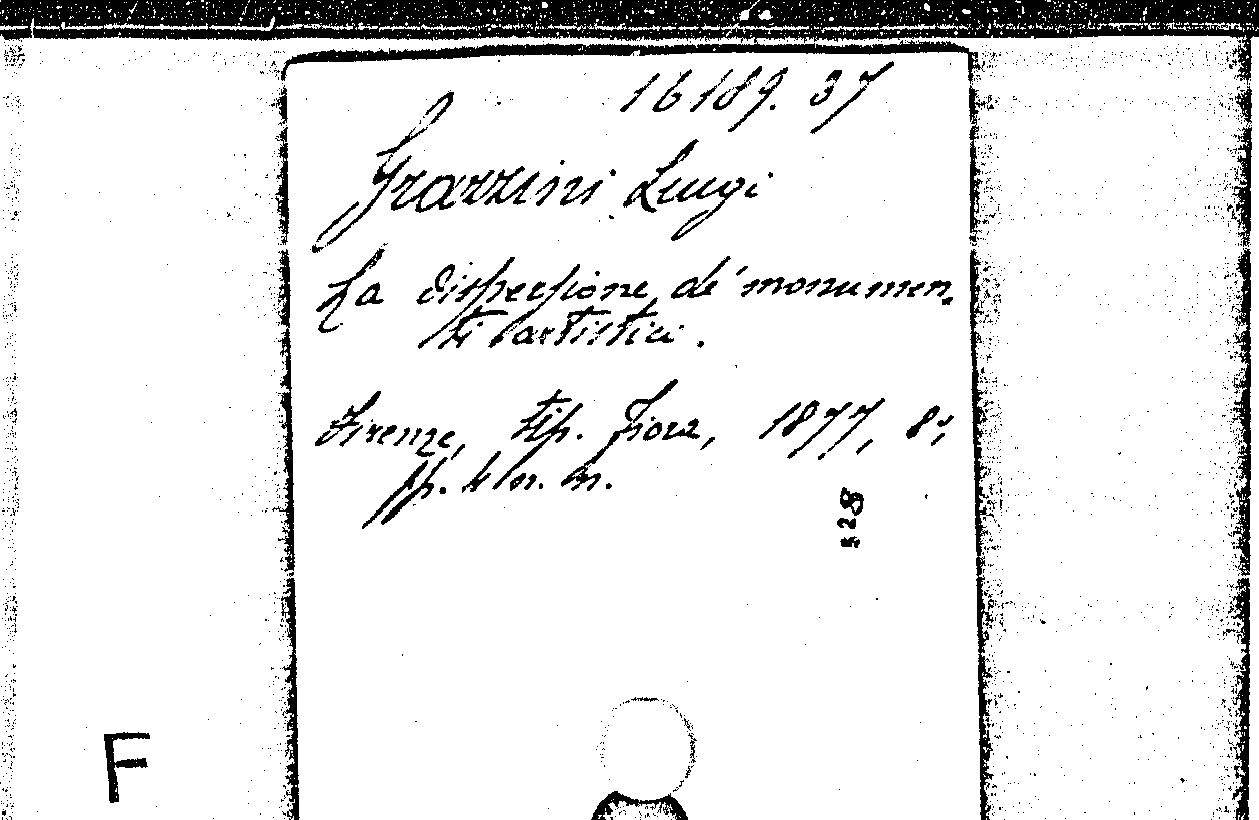 16189.37
Grazzini Luigi
La dispersione de' monumen-
ti artistici.
Firenze, tip. Fiora, 1877, 8°,
pp. 4 n. m.
528
F